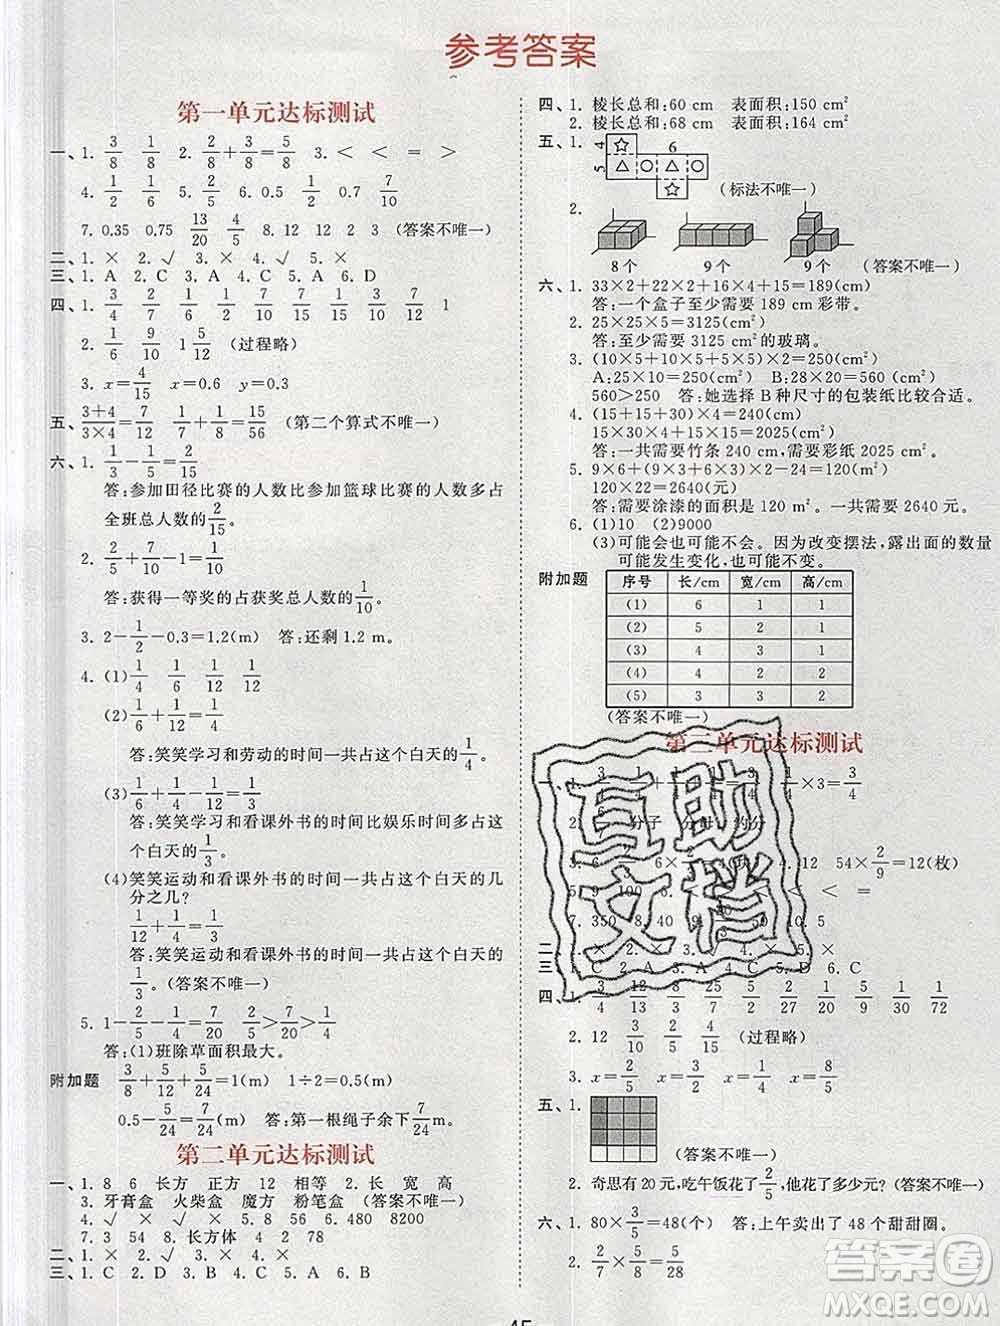 参考答案
第一单元达标测试
一、1. 3/8 1/8 2. 2/8+3/8=5/8 3. < < = >
4. 1/2 1/5 5. 2/5 6. 0.5 1/20 0.7 7/10
7. 0.35 0.75 13/20 4/5 8. 12 12 2 3 (答案不唯一)
二、1. × 2. √ 3. × 4. ×
三、1. A 2. C 3. A 4. C 5. A 6. D
四、1. 3/4 4/7 1/6 1/2 7/10 7/15 1/12 7/6 1
2. 1/6 9/10 1 5/12 (过程略)
3. x=4/5 x=0.6 y=0.3
五、(3+4)/(3×4)=7/12 1/7+1/8=15/56 (第二个算式不唯一)
六、1. 1/3-1/5=2/15
答:参加田径比赛的人数比参加篮球比赛的人数多占
全班总人数的2/15。
2. 1/2+3/5-1=1/10
答:获得一等奖的占获奖总人数的1/10。
3. 2-1/2-0.3=1.2(m) 答:还剩1.2 m。
4. (1)1/4 1/6 1/12 1/4
(2)1/6+1/12=1/4
答:笑笑学习和劳动的时间一共占这个白天的1/4。
(3)
答:笑笑学习和看课外书的时间比娱乐时间多占这
个白天的1/3。
(4)笑笑运动和看课外书的时间一共占这个白天的几
分之几?
1/12+1/4=1/3
答:笑笑运动和看课外书的时间一共占这个白天的
1/3。(答案不唯一)
5. 1-2/5-1/4=7/20 2/5>7/20>1/4
答:(1)班除草面积最大。
附加题 3/8+5/12+5/24=1(m) 1÷2=0.5(m)
0.5-5/24=7/24(m) 答:第一根绳子余下7/24 m。
第二单元达标测试
一、1. 8 6 长方 正方 12 相等 2. 长 宽 高
3. 牙膏盒 火柴盒 魔方 粉笔盒 (答案不唯一)
4. √ √ × √ 5. 8 56 6. 480 8200
7. 3 54 8. 长方体 4 2 78
二、1. × 2. √ 3. × 4. ×
三、1. C 2. C 3. A 4. C 5. B
四、1. 棱长总和:60 cm 表面积:150 cm²
2. 棱长总和:68 cm 表面积:164 cm²
五、1. 4 6 5 (标法不唯一)
2.
8个 9个 9个 (答案不唯一)
六、1. 33×2+22×2+16×4+15=189(cm)
答:一个盒子至少需要189 cm彩带。
2. 25×25×5=3125(cm²)
答:至少需要3125 cm²的玻璃。
3. (10×5+10×5+5×5)×2=250(cm²)
A:25×10=250(cm²) B:28×20=560(cm²)
560>250 答:她选择B种尺寸的包装纸比较合适。
4. (15+15+30)×4=240(cm)
15×30×4+15×15=2025(cm²)
答:一共需要竹条240 cm,需要彩纸2025 cm²。
5. 9×6+(9×3+6×3)×2-12×2=120(m²)
120×22=2640(元)
答:需要涂漆的面积是120 m²,一共花费2640元。
6. (1)10 (2)9000
(3)可能会也可能不会。因为改变摆法,露出面的数量
可能发生变化,也可能不变。
附加题
序号 长/cm 宽/cm 高/cm
(1) 6 1 1
(2) 5 2 1
(3) 4 3 1
(4) 4 2 2
(5) 3 3 2
(答案不唯一)
第三单元达标测试
3/4 ×3=3/4
分子
4. 12 54×2/9=12(枚)
5. 9 100 < < =
7. 350 8. 40 10. 5
二、
三、 6. C
四、1. 3/4 4/13 8/3 25/7 5/2 2/27 1/20 5/9 1/10 19/72
2. 12 3/10 2/5 4/15 (过程略)
3. x=2/5 x=3/4 x=1/4 x=8/5
五、1. (答案不唯一)
2. 奇思有20元,吃午饭花了2/5,他花了多少元?(答案不唯一)
六、1. 80×3/5=48(个) 答:上午卖出了48个甜甜圈。
2. 2/7×5/8=5/28
45
互助文档
答案圈
MXQE.COM